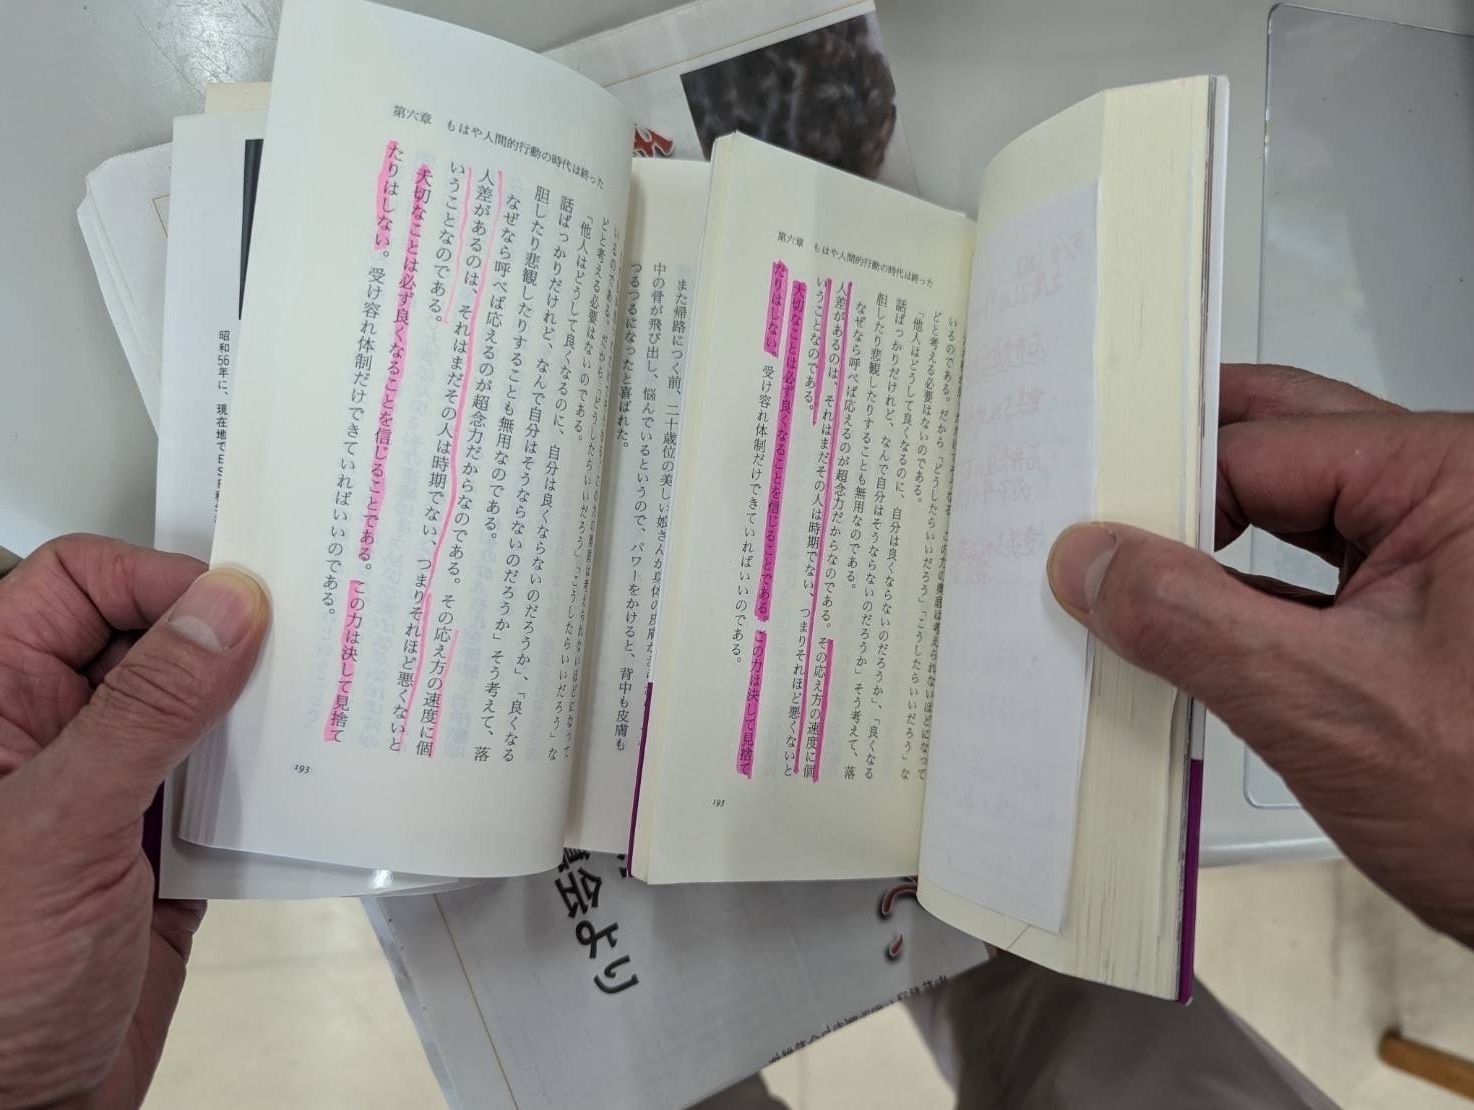 第六章 もはや人間的行動の時代は終った
どと考える必要はないのである。
「他人はどうして良くなるのに、自分は良くならないのだろうか」、「良くなる
話ばっかりだけれど、なんで自分はそうならないのだろうか」そう考えて、落
胆したり悲観したりすることも無用なのである。
なぜなら呼べば応えるのが超念力だからなのである。その応え方の速度に個
人差があるのは、それはまだその人は時期でない、つまりそれほど悪くないと
いうことなのである。
大切なことは必ず良くなることを信じることである。この力は決して見捨て
たりはしない。受け容れ体制だけできていればいいのである。
193
昭和56年に、現在地でESP科学
また帰路につく前、二十歳位の美しい娘さんが身体の皮膚が
中の骨が飛び出し、悩んでいるというので、パワーをかけると、背中も皮膚も
つるつるになったと喜ばれた。
第六章 もはや人間的行動の時代は終った
いるのである。だから「どうしたらいいだろう」「こうしたらいいだろう」な
どと考える必要はないのである。
「他人はどうして良くなるのに、自分は良くならないのだろうか」、「良くなる
話ばっかりだけれど、なんで自分はそうならないのだろうか」そう考えて、落
胆したり悲観したりすることも無用なのである。
なぜなら呼べば応えるのが超念力だからなのである。その応え方の速度に個
人差があるのは、それはまだその人は時期でない、つまりそれほど悪くないと
いうことなのである。
大切なことは必ず良くなることを信じることである。この力は決して見捨て
たりはしない。受け容れ体制だけできていればいいのである。
193
会より